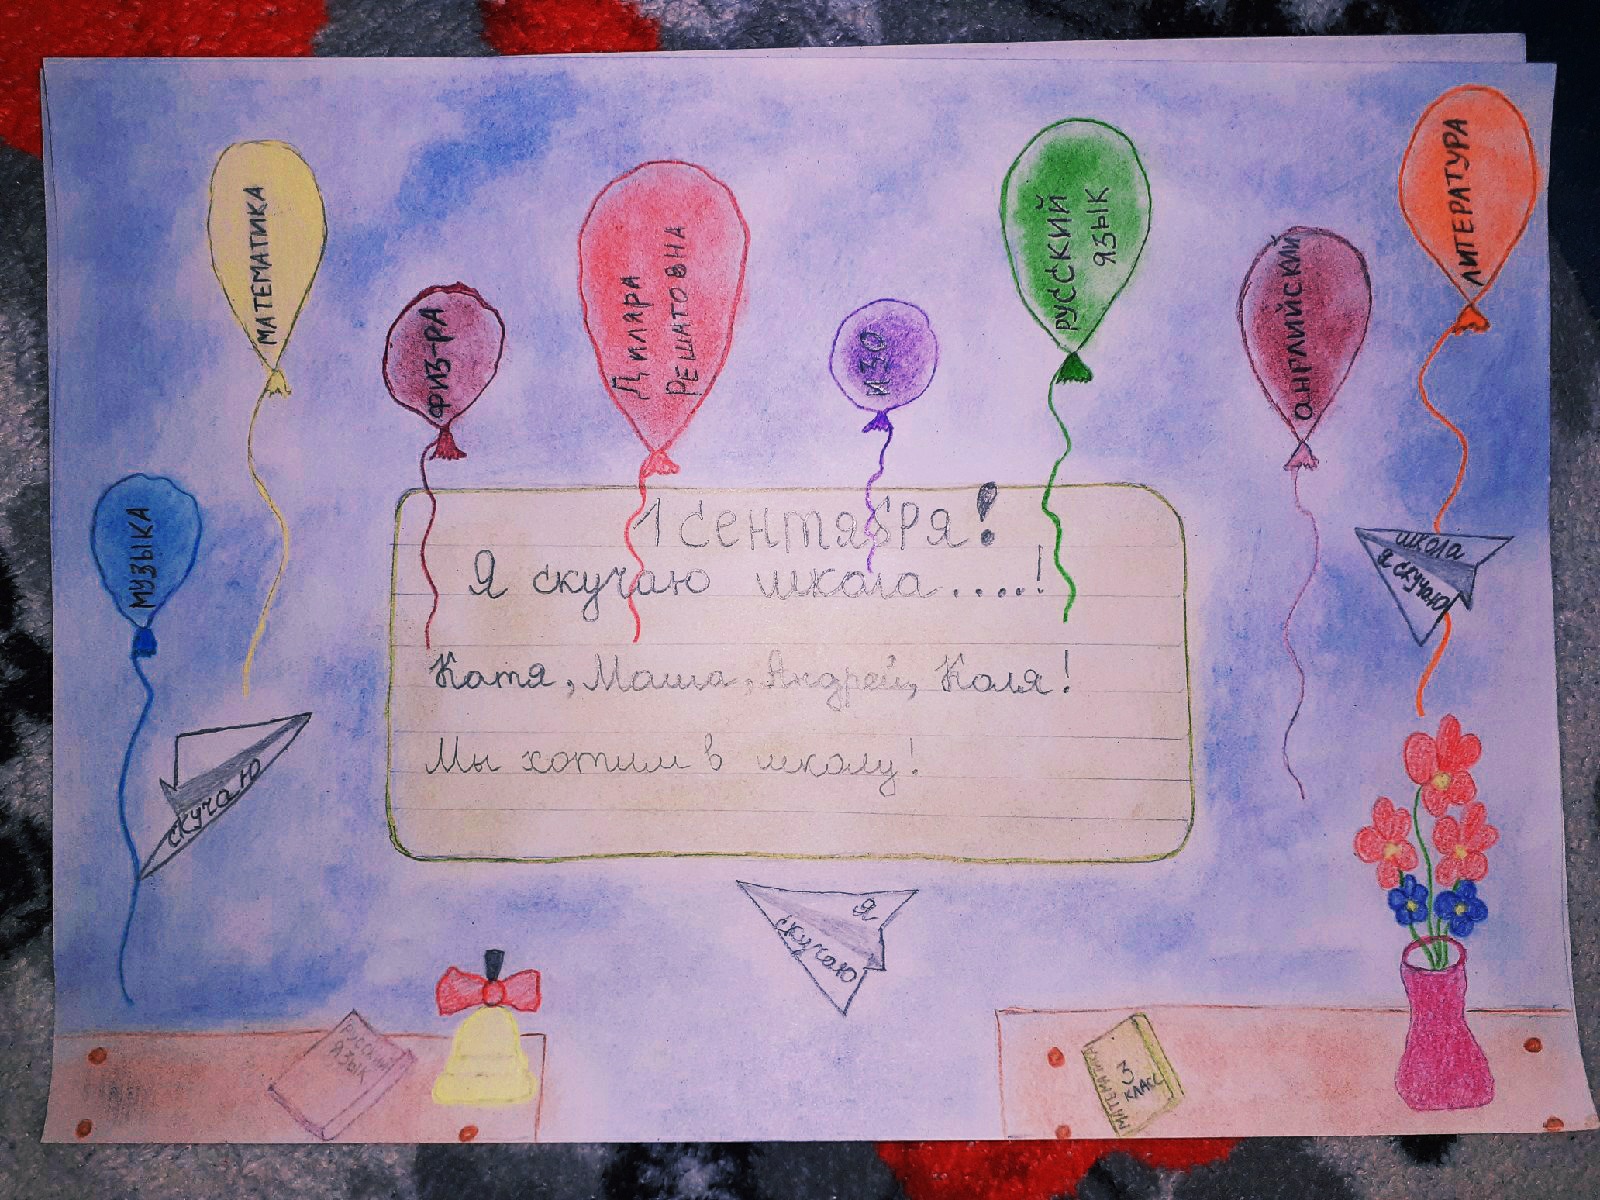 МАТЕМАТИКА
ФИЗ-РА
ДИЛЯРА
РЕШАТОВНА
ИЗО
РУССКИЙ
ЯЗЫК
АНГЛИЙСКИЙ
ЛИТЕРАТУРА
МУЗЫКА
1 сентября!
Я скучаю школа....!
Катя, Маша, Андрей, Коля!
Мы хотим в школу!
школа
я скучаю
скучаю
Я
скучаю
РУССКИЙ
ЯЗЫК
МАТЕМАТИКА
3
КЛАСС